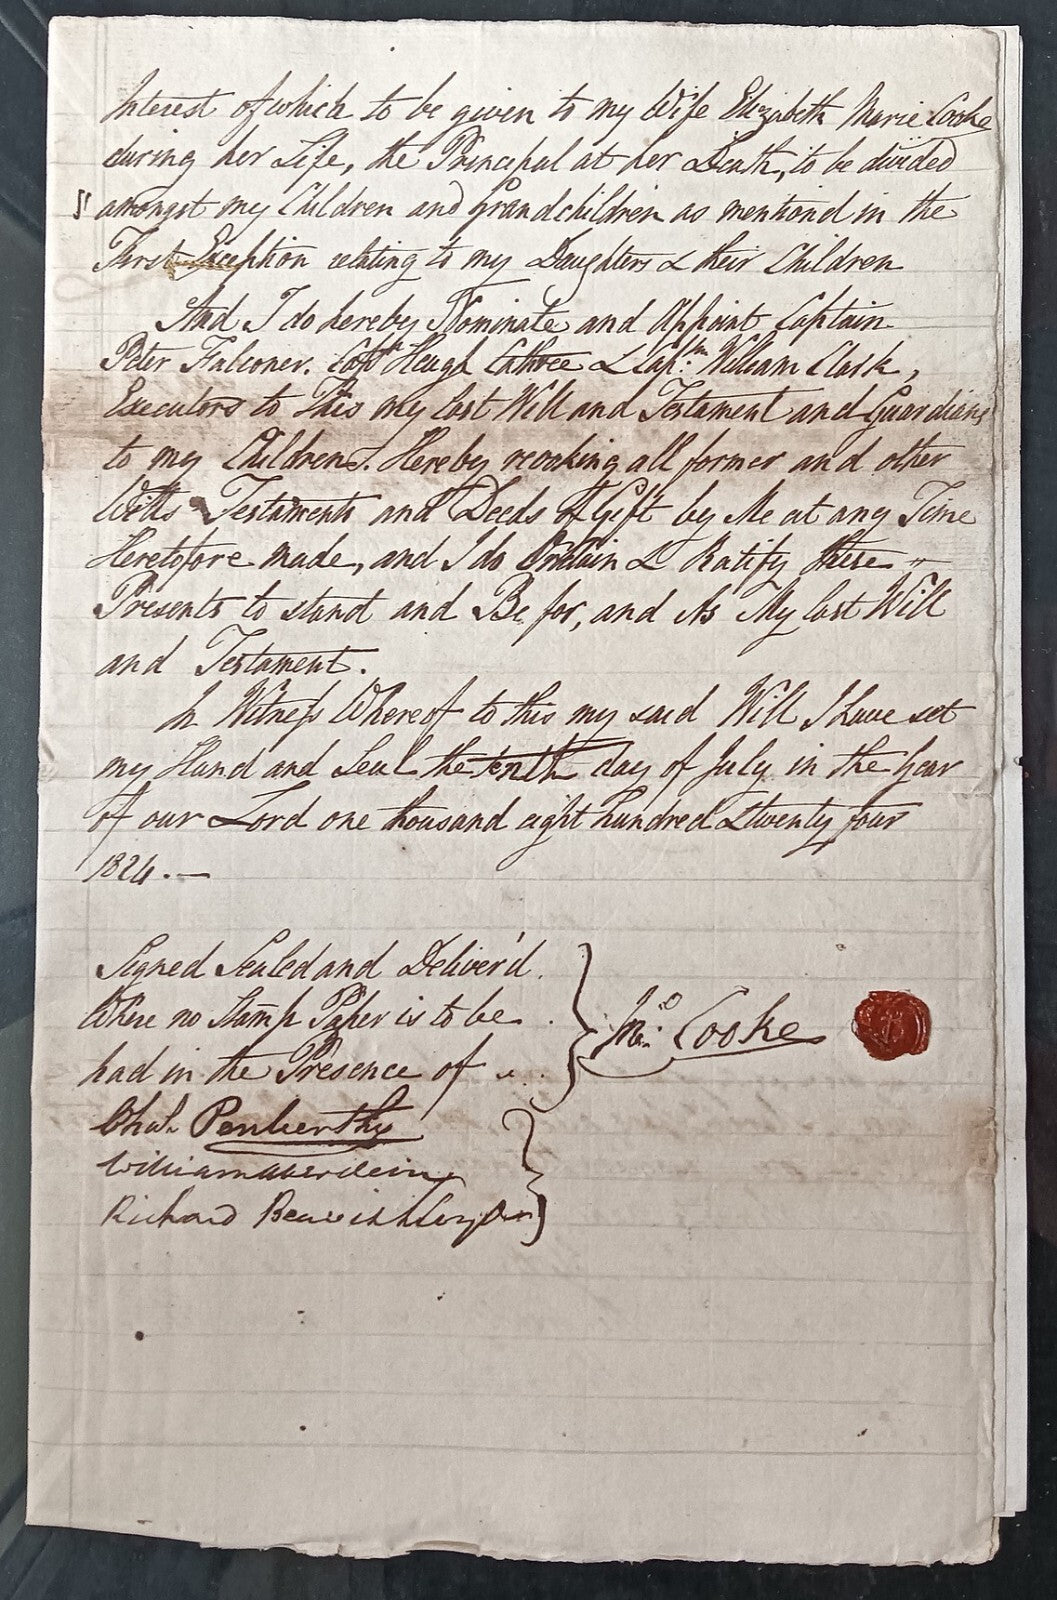 Interest of which to be given to my Wife Elizabeth Marie Cooke
during her Life, the Principal at her Death, to be divided
amongst my Children and Grandchildren as mentiond in the
First Exception relating to my Daughters & their Children
And I do hereby Nominate and Appoint Captain
Peter Falconer. Capt Heugh & Capn: William Clark,
Executors to This my last Will and Testament and Guardians
to my Children. Hereby revoking all former and other
Wills Testaments and Deeds of Gift by Me at any Time
Heretofore made, and I do Ordain & Ratify these
Presents to stand and Be for, and As My last Will
and Testament.
In Witness Whereof to this my said Will I have set
my Hand and Seal the tenth day of July in the Year
of our Lord one thousand eight hundred & twenty four
1824.—
Signed Sealed and Deliver'd.
Where no Stamp Paper is to be
had in the Presence of
Jno. Cooke
Chas. Penberthy
William
Richard